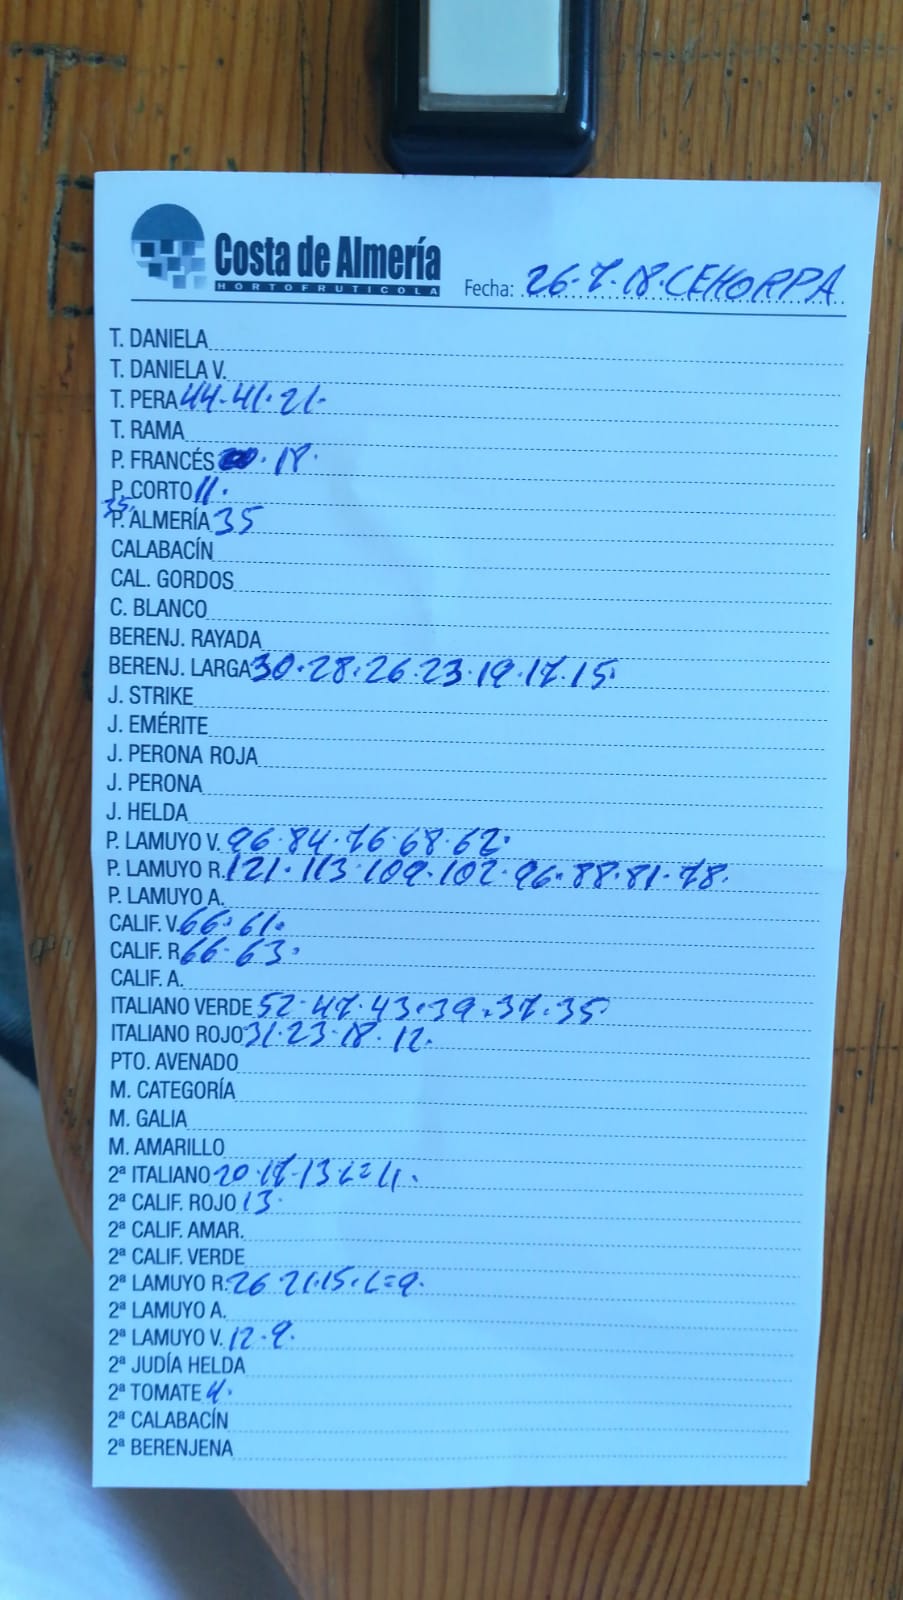 Costa de Almería
HORTOFRUTICOLA
Fecha: 26.7.18.CEHORPA
T. DANIELA
T. DANIELA V.
T. PERA 44.41.21.
T. RAMA
P. FRANCÉS . 18.
P. CORTO 11.
35.
P. ALMERÍA 35
CALABACÍN
CAL. GORDOS
C. BLANCO
BERENJ. RAYADA
BERENJ. LARGA 30.28.26.23.19.17.15.
J. STRIKE
J. EMÉRITE
J. PERONA ROJA
J. PERONA
J. HELDA
P. LAMUYO V. 96.84.76.68.62.
P. LAMUYO R. 121.113.109.102.96.88.81.78.
P. LAMUYO A.
CALIF. V. 66.61.
CALIF. R 66.63.
CALIF. A.
ITALIANO VERDE 52.47.43.39.37.35.
ITALIANO ROJO 31.23.18.12.
PTO. AVENADO
M. CATEGORÍA
M. GALIA
M. AMARILLO
2ª ITALIANO 20.17.13 L=11.
2ª CALIF. ROJO 13.
2ª CALIF. AMAR.
2ª CALIF. VERDE
2ª LAMUYO R. 26 21.15.L=9.
2ª LAMUYO A.
2ª LAMUYO V. 12.9.
2ª JUDÍA HELDA
2ª TOMATE 4.
2ª CALABACÍN
2ª BERENJENA